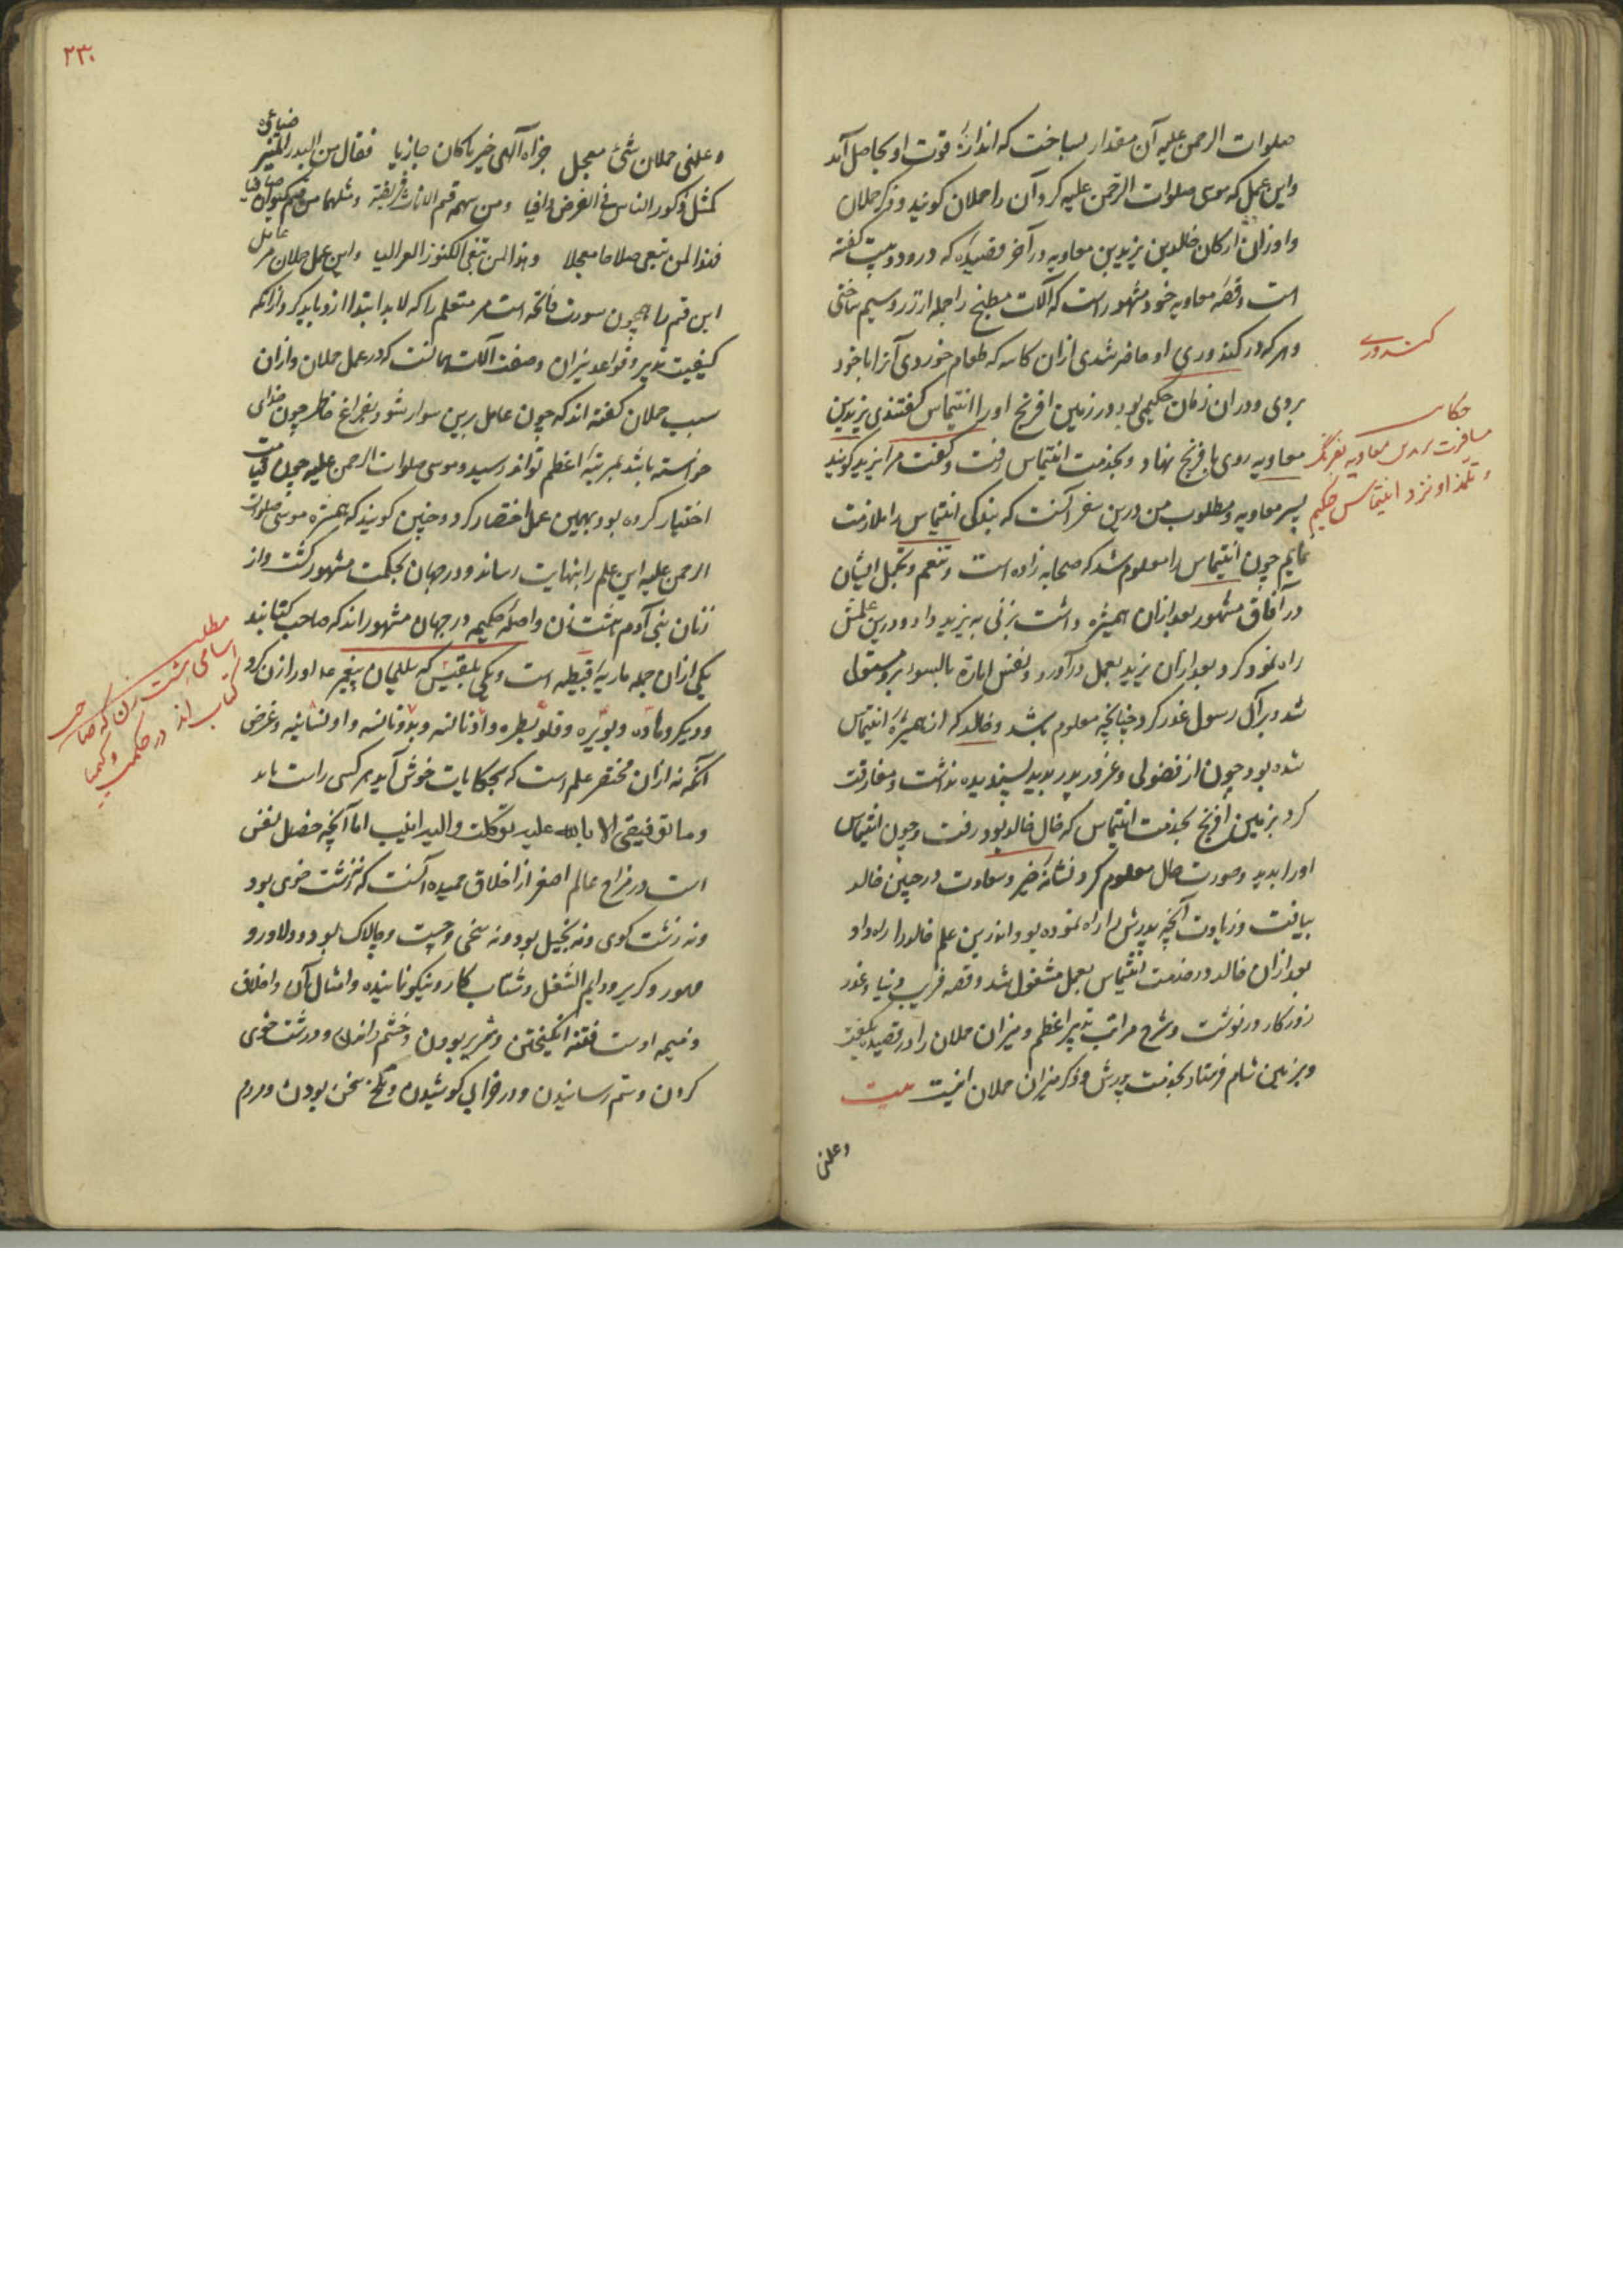 صلوات الرحمن علیه آن مقدار بساخت که اندازۀ قوت او بحاصل آمد
واین عمل که موسی صلوات الرحمن علیه کرد آن را حملان کویند و ذکر حملان
واوزان ارکان خالد بن یزید بن معاویه در آخر قصیده که در دو بیت کفته
است وقصۀ معاویه خود مشهور است که آلات مطبخ را جمله از زر وسیم ساختی
وهر که در کندوری او حاضر شدی ازان کاسه که طعام خوردی آنرا با خود
بردی ودران زمان حکیمی بود در زمین افرنج او را انتیماس کفتندی یزید بن
معاویه روی بافرنج نهاد وبخدمت انتیماس رفت وکفت مرا یزید کویند
پسر معاویه ومطلوب من درین سفر آنست که بندکی انتیماس را ملازمت
نمایم چون انتیماس را معلوم شد که صحابه زاده است وتنعم وتجمل ایشان
در آفاق مشهور بعد ازان همشیره داشت بزنی به یزید داد ودرین علمش
راه نمود کرد بعد ازان یزید بعمل درآورد ونفس امارۀ بالسوء برو مستولی
شد وبر آل رسول غدر کرد چنانچه معلوم باشد وخالد که از همشیرۀ انتیماس
شده بود چون از فضولی وغرور پدر بدید پسندیده نداشت ومفارقت
کرد بزمین افرنج بخدمت انتیماس که خال خالد بود رفت وچون انتیماس
اورا بدید وصورت حال معلوم کرد نشانۀ خیر وسعادت در جبین خالد
بیافت وزیادت آنچه پدرش را راه نموده بود اندرین علم خالد را راه داد
بعد ازان خالد در خدمت انتیماس بعمل مشغول شد وقصه فریب دنیا وغدر
روزکار در نوشت وشرح مراتب تدبیر اعظم ومیزان حملان را در قصیده بکفت
وبزمین شام فرستاد بخدمت پدرش وذکر میزان حملان اینست بیت
وعلنی
کندوری
حکایت
مسافرت یزید بن معاویه بفرنک
وتلمذ او نزد انتیماس حکیم
۲۳۰
وعلنی حملان شیء معجل جزاه الهی خیر ما کان جازیا فقال من البدر المنیر
ضیائه
کمثل ذکور الناس فی الفرض وافیا ومن سهمه قم الاناث فریضة ومثلهما من
فهذا لمن تبغی صلاحا معجلا وهذا لمن تبغی الکنوز العوالیا واین عمل حملان مر
عامل
این قم را همچون سورت فاتحه است مر متعلم را که لابد ابتدا ازو باید کرد وزانکه
کیفیت تدبیر وقواعد نیران وصفت آلت همانست که در عمل حملان وازان
سبب حملان کفته اند که چون عامل برین سوار شود بفراغ خاطر چون خدای
خواسته باشد بمرتبۀ اعظم تواند رسید وموسی صلوات الرحمن علیه چون قیامت
اختیار کرده بود بهمین عمل اختصار کرد وچنین کویند که همشیرۀ موسی صلوات
الرحمن علیه این علم را بنهایت رساند ودر جهان بحکمت مشهور کشت واز
زنان بنی آدم هشت زن واصلۀ حکیمه در جهان مشهور اند که صاحب کتابند
یکی ازان جمله ماریۀ قبطیه است ویکی بلقیس که سلیمان پیغمبر ع م اورا زن کرد
ودیکر وهاده وبویره وقلوبطره واذنانسه وبدونانسه واولشانیه وغرض
آنکه نه ازان مختصر علم است که بحکایات خوش آید هر کسی راست یابد
وما توفیقی الا بالله علیه توکلت والیه انیب اما آنچه خصل نفس
است در مزاج عالم اصغر از اخلاق حمیده آنست که نه زشت خوی بود
ونه زشت کوی ونه بخیل بود ونه سخی وچست وچالاک بود ودلاور و
صبور وکریر ودایم الشغل وشتاب کار ونیکو نماینده وامثال آن واخلاق
ذمیمه اوست فتنه انکیختن وشریر بودن وخشم راندن ودرشت خوی
کردن وستم رسانیدن ودر خرابی کوشیدن وتلخ سخن بودن ومردم
مطلب
اسامی هشت زن که صاحب
کتاب اند در حکمت
وکیمیا